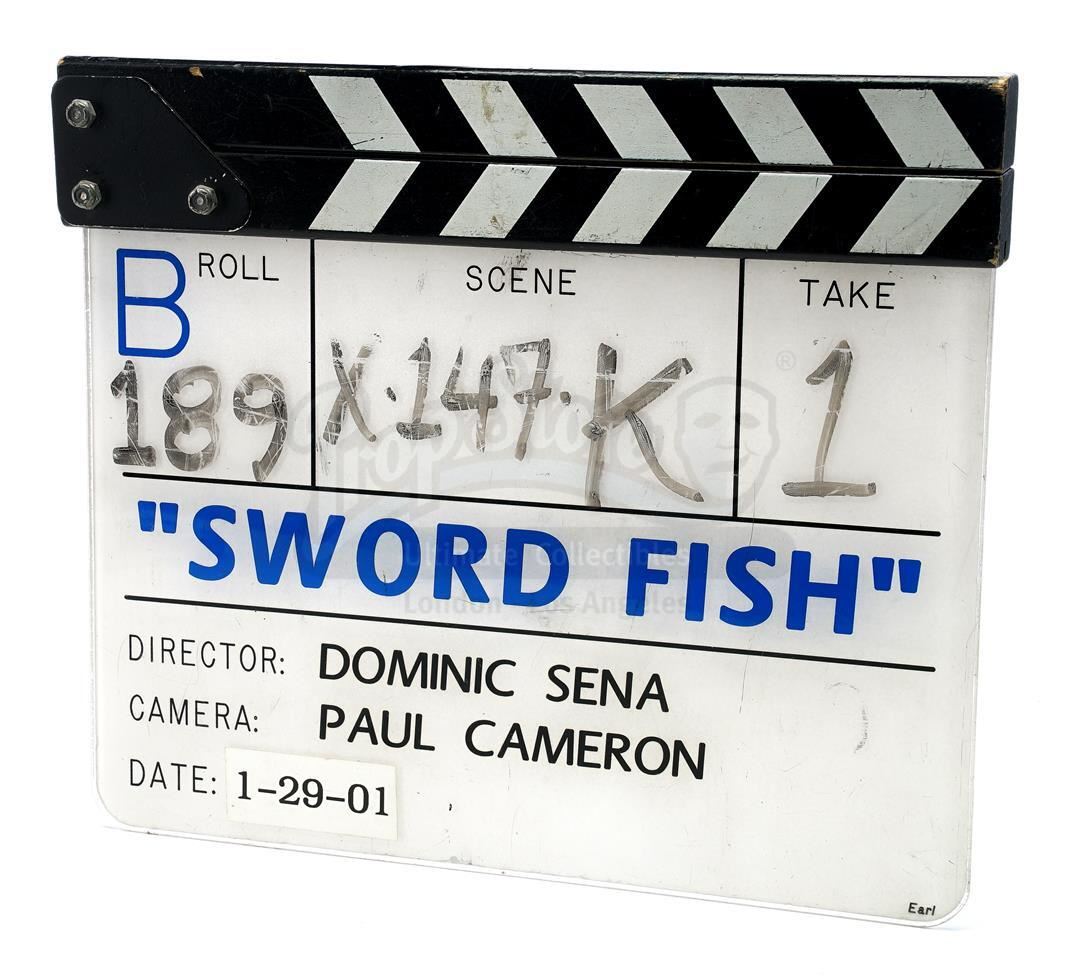 B ROLL SCENE TAKE
189 X.147.K 1
"SWORD FISH"
DIRECTOR: DOMINIC SENA
CAMERA: PAUL CAMERON
DATE: 1-29-01
Earl
PropStore ®
Ultimate Collectibles
London Los Angeles